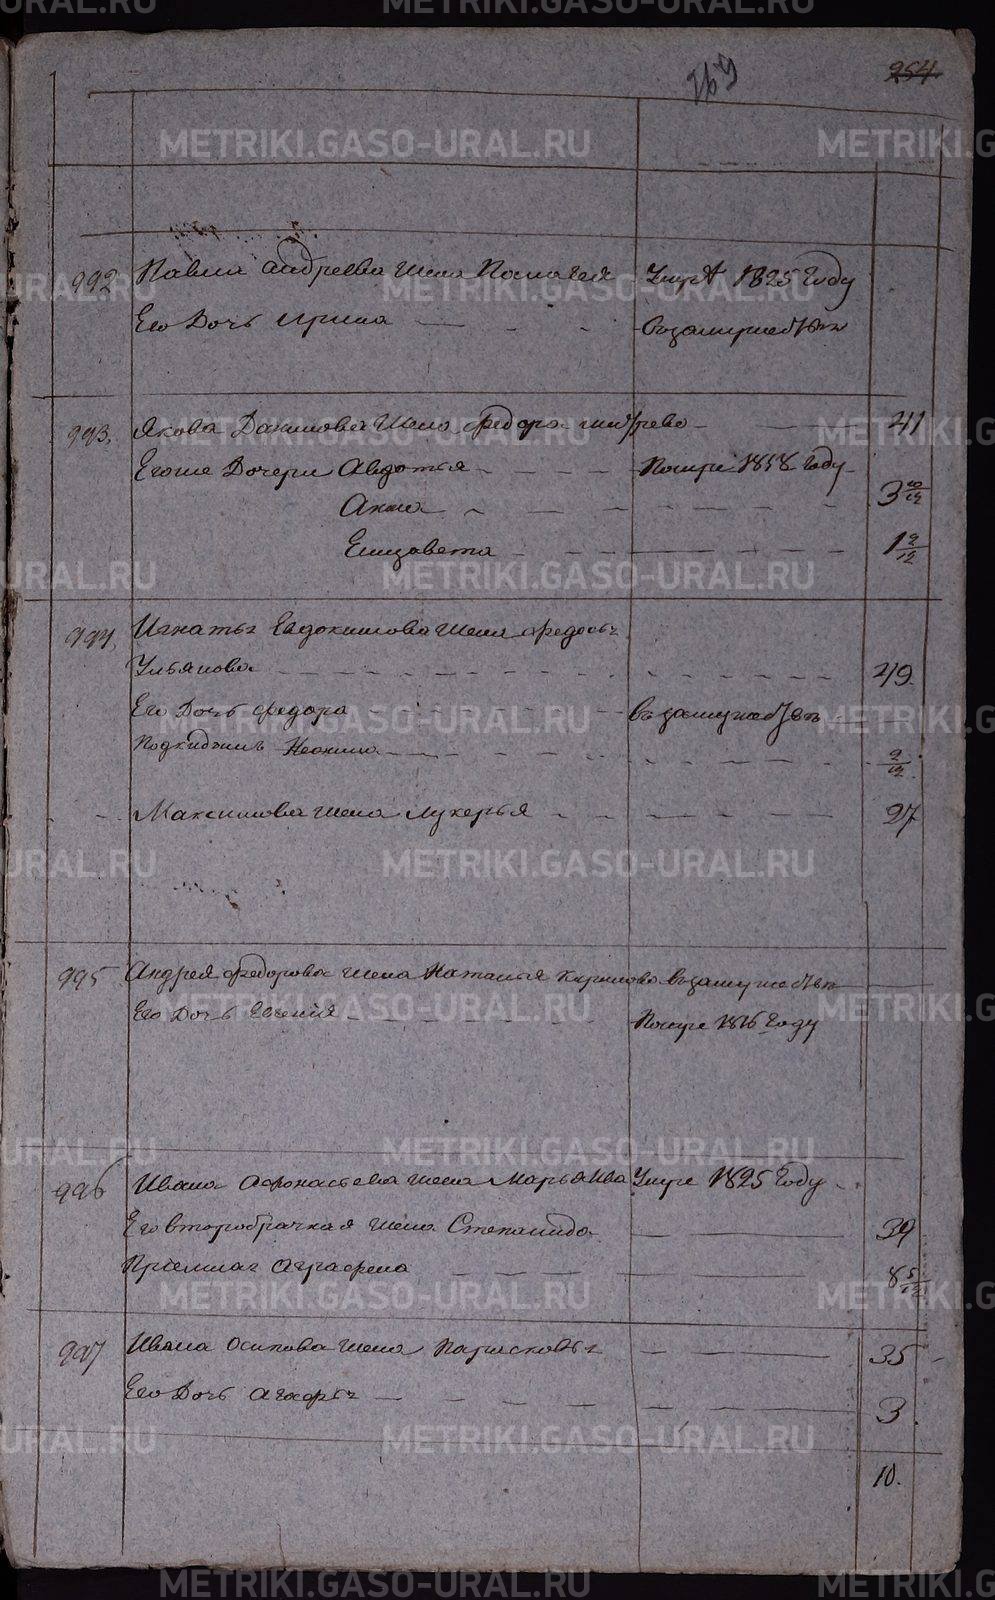 254
769
992 Павла Андреева жена Пелагея Умре 1825 Году
Его Дочь Ирина в замужестве
993. Якова Данилова жена Федора Дмитрева 41
Егоже Дочери Авдотья Помере 1818 Году
Анна 3 10/12
Елизавета 1 2/12
994. Игнатья Евдокимова жена Федосья
Ульянова 49
Его Дочь Федора в замужестве
Подкидышъ Неонила 9/12
Максимова жена Лукерья 27
995 Андрея Федорова жена Наталья Карпова в замужестве
Его Дочь Евгения Помере 1816 Году
996 Ивана Афонасьева жена Марья Умре 1825 Году
Его второбрачная жена Степанида 39
Приемная Аграфена 8 5/12
997 Ивана Осипова жена Парасковья 35
Его Дочь Агафья 3
10.
METRIKI.GASO-URAL.RU